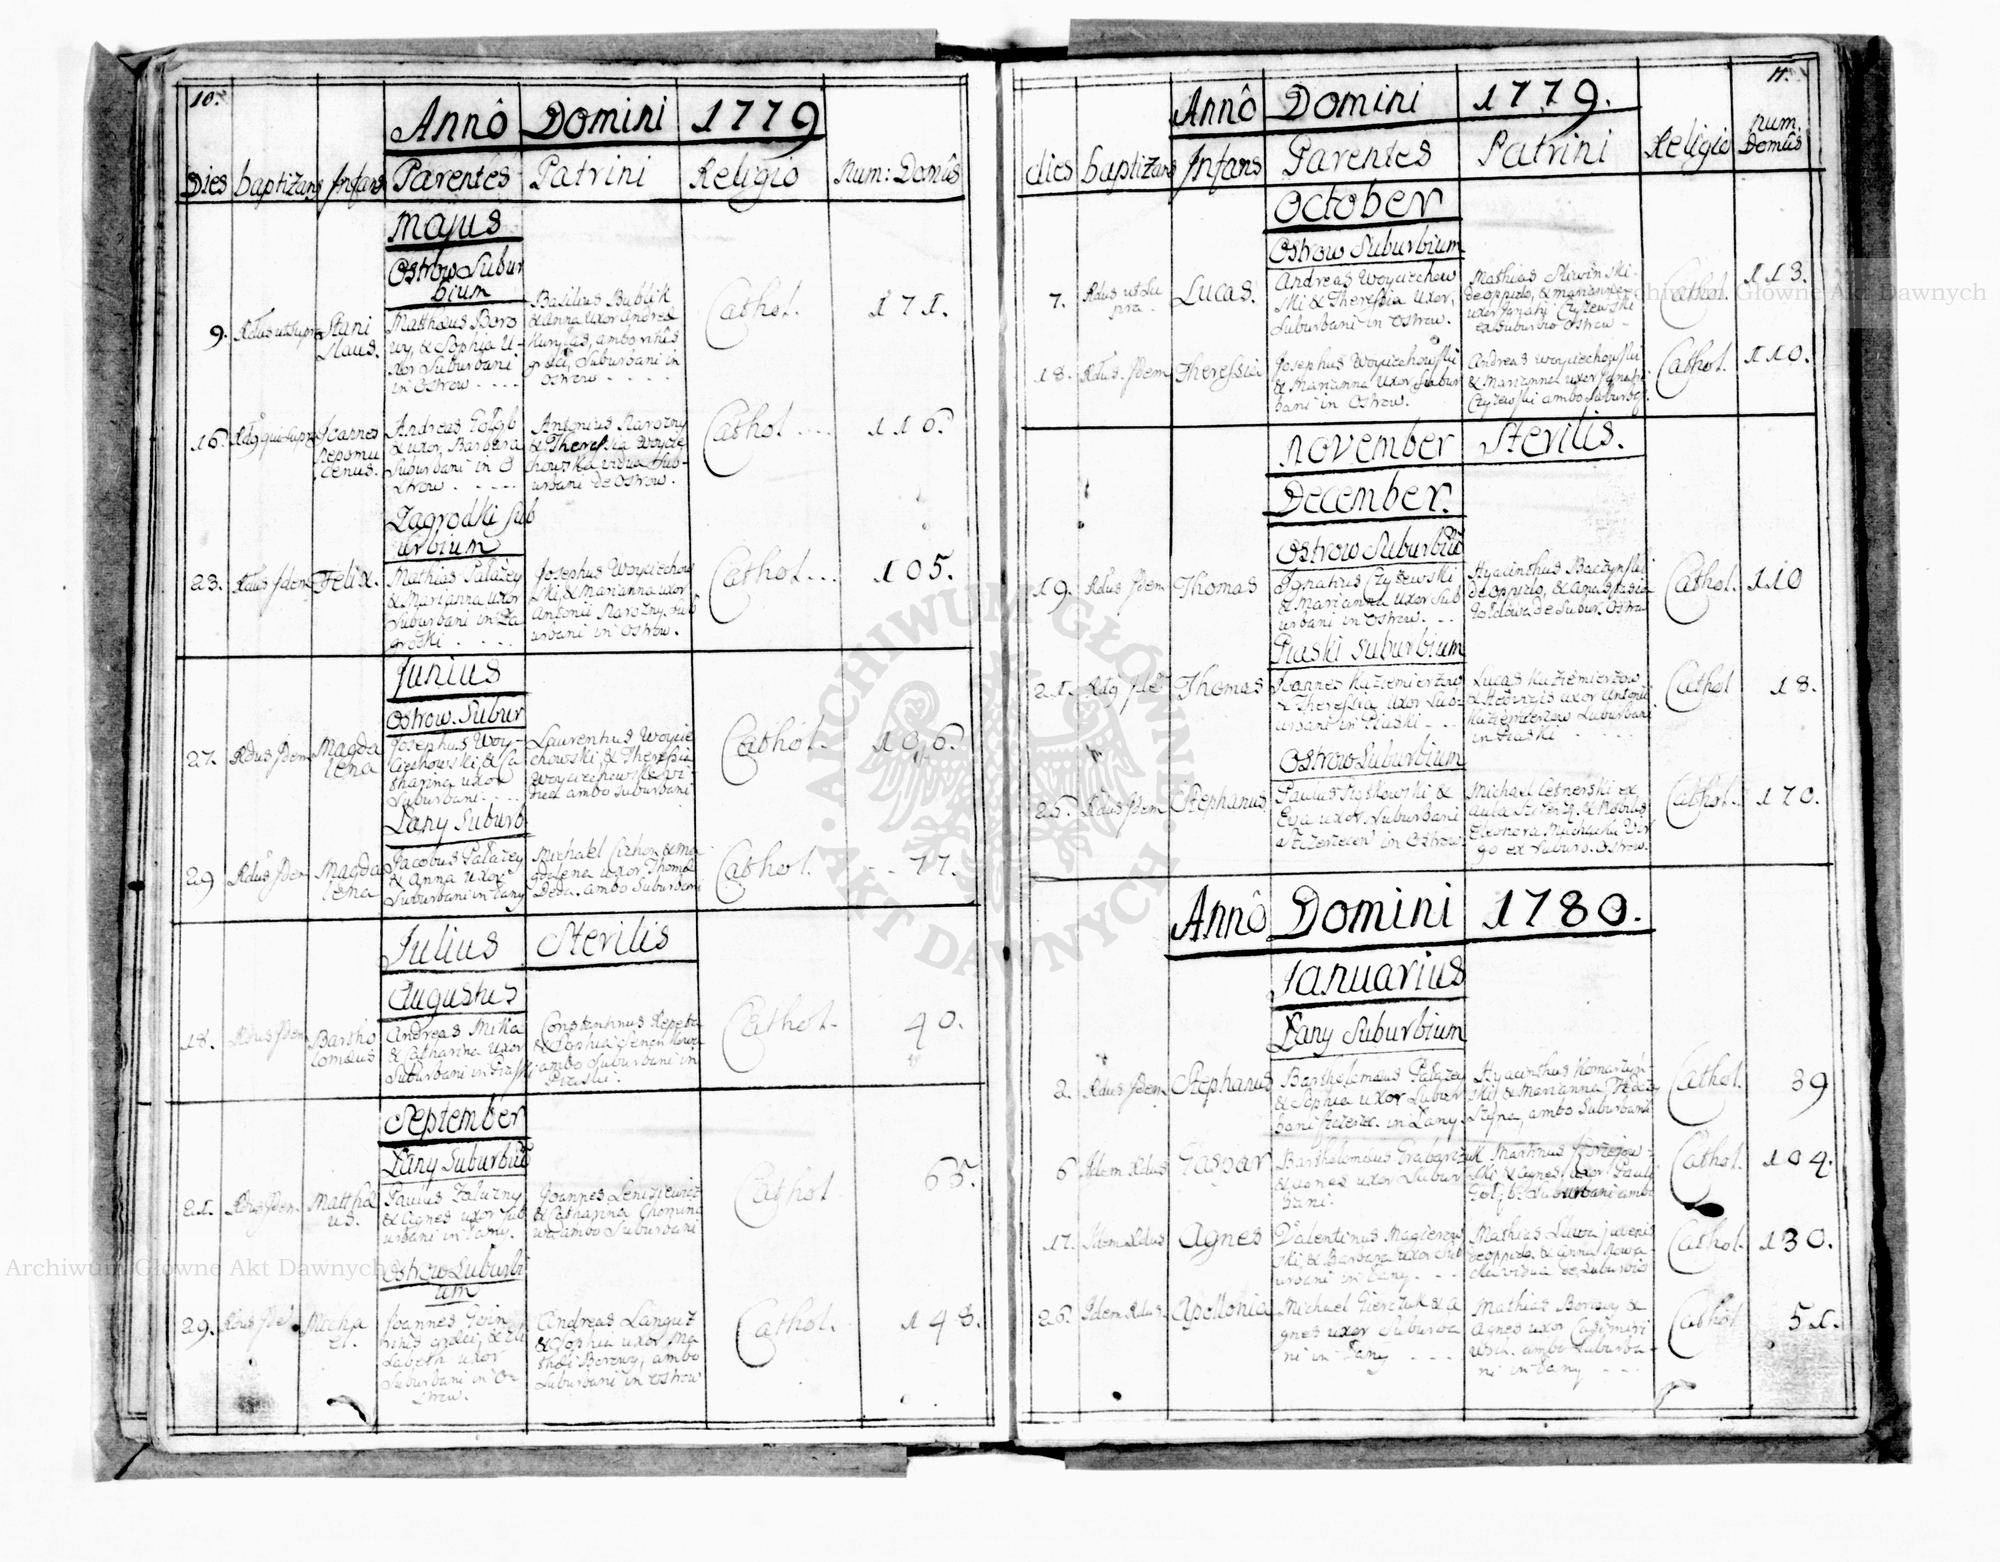 10.
Annô Domini 1779
Dies baptizans Infans Parentes Patrini Religio Num: Domûs
Majus
Ostrow Subur
bium
9. Rdus ut supra
Stani
slaus.
Matthæus Boro
wy, & Sophia U-
xor Suburbani
in Ostrow - - - -
Basilius Bublik
& Anna uxor Andreæ
ambo ritûs
græci, Suburbani in
Ostrow - - - -
Cathol.
171.
16. Rds qui supra
Joannes
Nepomu
cenus.
Andreas Gołąb
& uxor, Barbara
Suburbani in O
strow . - - -
Antonius Narozny
& Theressia Woycie
chowska vidua Sub-
urbani de Ostrow.
Cathol ....
116.
Zagrodki sub
urbium
23. Rdus Idem
Felix.
Mathias Pałazey
& Marianna uxor
Suburbani in Za
grodki . - - .
Josephus Woyciechow
ski, & Marianna uxor
Antonii Narozny, sub
urbani in Ostrow.
Cathol...
105.
Junius
Ostrow. Subur
27. Rdus Idem
Magda
lena
Josephus Woy-
ciechowski, & Ca
tharina uxor
Suburbani. - - .
Laurentius Woycie
chowski, & Theressia
Woyciechowska vi-
dua ambo suburbani
Cathol.
106.
Łany Suburb
29 Rdus Idem
Magda
lena
Jacobus Pałazey
& Anna uxor
Suburbani in Łany
Michael Cichon, & Ma
gdalena uxor Thomæ
Deda. ambo Suburbani
Cathol.
- - 77.
Julius Sterilis
Augustus
18. Rdus Idem
Bartho
lomæus
Andreas Mika
& Catharina Uxor
Suburbani in Piaski
Constantinus Repeta
& Sophia
ambo Suburbani in
Piaski.
Cathol.
40.
September
Łany Suburbiu
21. Rdus Idem
Matthæ
us.
Paulus Załuzny
& Agnes uxor Sub
urbani in Łany.
Joannes Leniziewicz
& Catharina Chomine
ambo Suburbani
Cathol
65.
Ostrow Suburbi
um
29. Rdus Idem
Micha
el.
Joannes
ritûs græci, & Eli
sabeth uxor
Suburbani in Os
strow.
Andreas Languz
& Sophia uxor Ma
thæi Borowy, ambo
Suburbani in Ostrow
Cathol.
148.
11.
Annô Domini 1779.
dies baptizans Infans Parentes Patrini Religio Num.
Domûs
October
Ostrow Suburbium
7. Rdus ut Su
pra.
Lucas.
Andreas Woyciechow
ski & Theressia Uxor,
Suburbani in Ostrow.
Mathias Sliwinski
de oppido, & Marianna
uxor Ignatij Czyżewski
ex Suburbio Ostrow -
Cathol.
113.
18. Rdus. Idem
Theressia
Josephus Woyciechowski
& Marianna Uxor Subur
bani in Ostrow.
Andreas Woyciechowski
& Marianna uxor Ignatij
Czyżewski ambo Suburb.
Cathol.
110.
November Sterilis.
December.
Ostrow Suburbiū
19. Rdus Idem
Thomas
Ignatius Czyżewski
& Marianna uxor Sub
urbani in Ostrow. - .
Hyacinthus Baczynski
de oppido, & Anastasia
de Subur. Ostrow
Cathol.
110
Piaski Suburbium
21. Rdq Idē
Thomas
Joannes Kazimierzow
& Theressia uxor Sub-
urbani in Piaski - - .
Lucas Kazimierzow
& Hedvigis uxor Antonii
Kazimierzow Suburbani
in Piaski - - - - -
Cathol
18.
Ostrow Suburbium
26. Rdus Idem
Stephanus
Paulus Koskowski &
Eva uxor Suburbani
in Ostrow.
Michael Cesnerski ex
Aula & Nobilis
Eleonora Vir
go ex Suburb. Ostrow.
Cathol.
170.
Annô Domini 1780.
Januarius
Łany Suburbium
2. Rdus Idem
Stephanus
Bartholomæus Pałazey
& Sophia uxor Subur
bani in Łany
Hyacinthus Komarzyn
ski & Marianna
ambo Suburbani
Cathol.
39
6 Idem Rdus
Caspar
Bartholomæus Grabarczuk
& Agnes uxor Subur
bani.
Martinus
ski & Agnes uxor Pauli
Gołąb. Suburbani ambo
Cathol.
104.
17. Idem Rdus
Agnes
Valentinus Magierow
ski, & Barbara uxor Sub
urbani in Łany - - -
Mathias juvenis
de oppido. & Anna Nowa-
cka vidua de Suburbio
Cathol.
130.
26. Idem Rdus.
Apollonia
Michael Gierczuk & A
gnes uxor Suburba
ni in Łany - - -
Mathias Borowy &
Agnes uxor Casimiri
ambo Suburba-
ni in Łany - - -
Cathol
51.
ARCHIWUM GŁÓWNE
AKT DAWNYCH
Archiwum Główne Akt Dawnych
Archiwum Główne Akt Dawnych